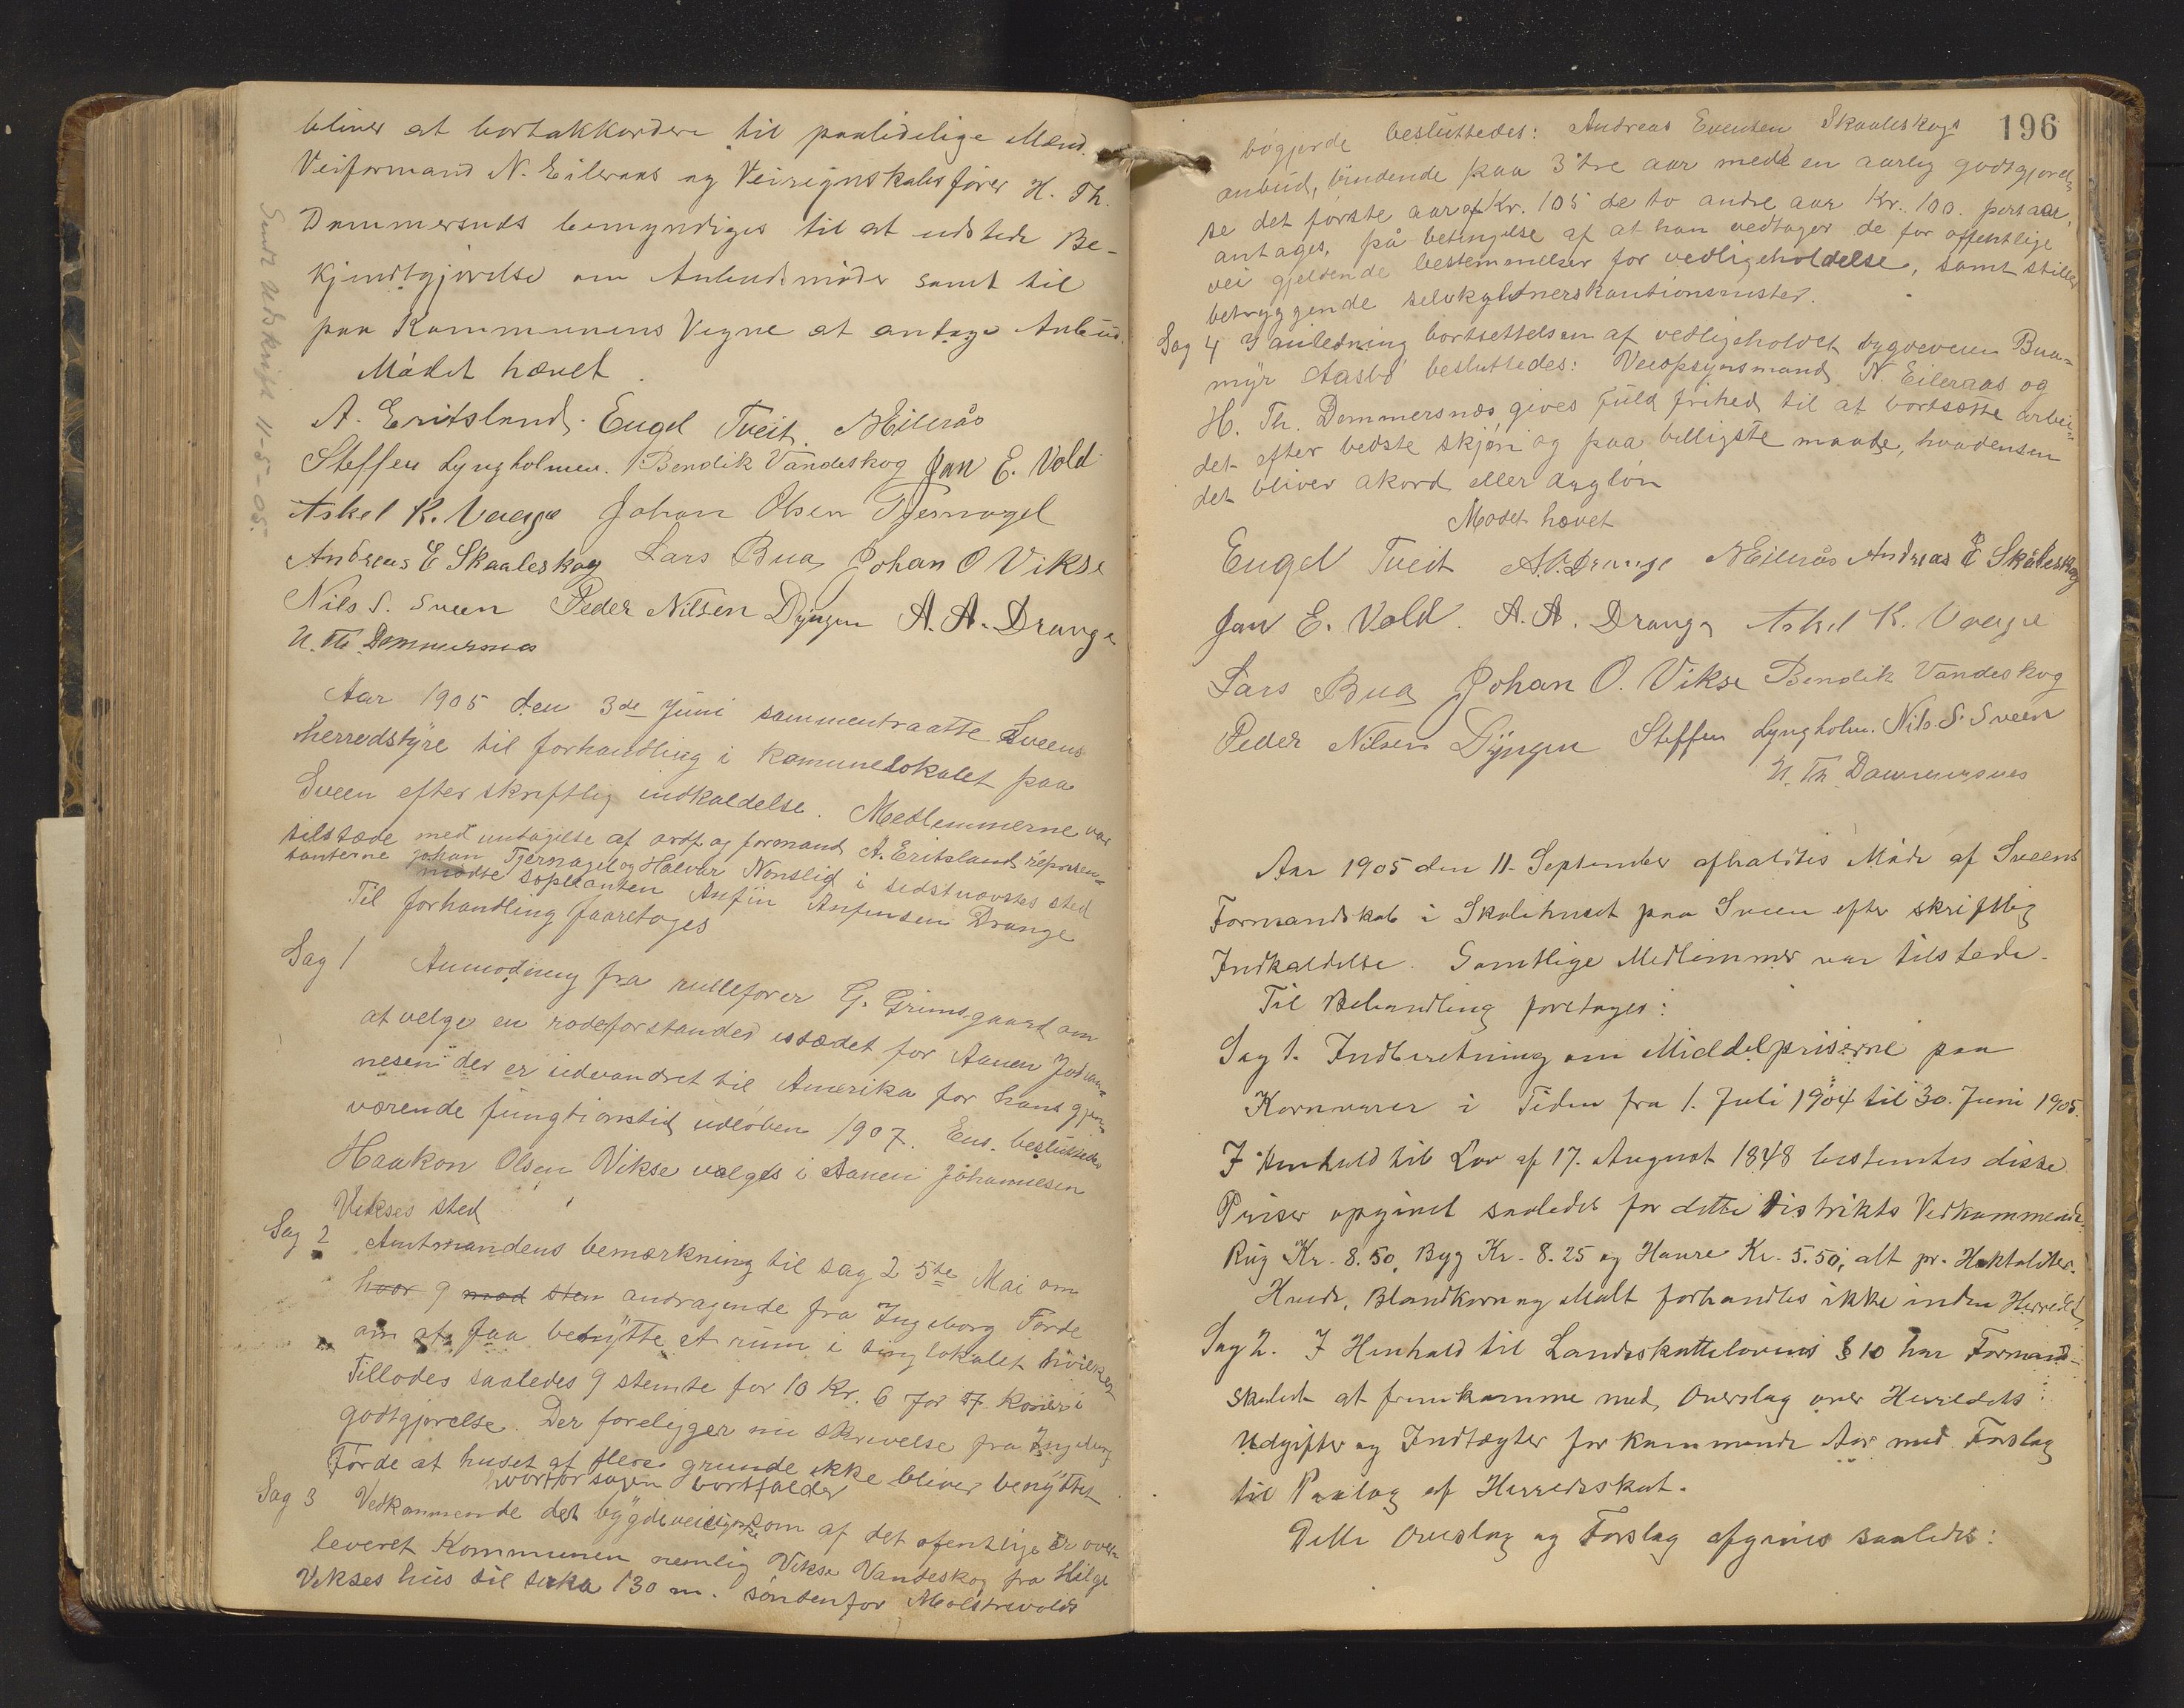 bliver at bortakkordere til paalidelige Mænd.
Veiformand N. Eileraas og Veiregnskabsfører H. Th.
Dommersnæs bemyndiges til at udstede Be-
kjendtgjørelse om Anbudsmøder samt til
paa Kommunens Vegne at antage Anbud.
Mødet hævet.
A. Eritsland. Engel Tveit. NEilerås
Steffen Lyngholmen. Bendik Vandeskog Jan E. Vold
Askel K. Vaage Johan Olsen Tjernagel
Andreas E Skaaleskog Lars Bua Johan O Vikse
Nils S. Sveen Peder Nilsen Dyngen A. A. Drange
H. Th. Dommersnes
Sendt Utskrift 11-5-05.
Aar 1905 den 3de Juni sammentraatte Sveens
herredstyre til forhandling i komunelokalet paa
Sveen efter skriftlig indkaldelse. Medlemmerne var
tilstæde med undtagelse af ordf. og formand A. Eritsland, represen-
tanterne Johan Tjernagel og Halvor Nonslid i sidstnævntes sted
mødte supleanten Anfin Anfinsen Drange
Til forhandling foaretoges
Sag 1 Anmodning fra rullefører G. Grimsgaard om
at velge en rodeforstander istædet for Aanen Johan-
nesen der er udvandret til Amerika for hans gjen-
værende fungtionstid udløben 1907. Ens. besluttedes
Haakon Olsen Vikse valges i Aanen Johannesen
Vikses sted
Sag 2 Amtmandens bemærkning til sag 2 5te Mai om
hvor 9 mod sten andragende fra Ingeborg Førde
om at faa benytte et rum i tinglokalet hvilket
Tillodes saaledes 9 stemte for 10 Kr. 6 for 7 Kroner i
godtgjørelse. Der foreligger nu skrivelse fra Ingeborg
Førde at huset af flere grunde ikke bliver benyttet
hvorfor sagen bortfalder
Sag 3 Vedkommende det bygdeveistykke som af det ofentlige er over-
leveret Kommunen nemlig Vikse Vandeskog fra Helge
Vikses hus til sirka 130 m. søndenfor Mølstrevolds
196
bøgjerde besluttedes: Andreas Evensen Skaaleskogs
anbud, bindende paa 3 tre aar med en aarlig godtgjørel-
se det første aar af Kr. 105 de to andre aar Kr. 100. per aar,
antages, på betingelse af at han vedtager de for offentlige
vei gjeldende bestemmelser for vedligeholdelse, samt stiller
betryggende selvskyldnerskautionsmister.
Sag 4 I anledning bortsettelsen af vedligeholdet bygdeveien Bua-
myr Aasbø besluttedes: Veiopsynsmand N. Eileraas og
H. Th. Dommersnæs gives fuld frihed til at bortsætte arbei-
det efter bedste skjøn og paa billigste maade, hvadensen
det bliver akord eller dagløn
Mødet hævet
Engel Tveit A. V. Drange NEilerås Andreas E Skåleskog
Jan E. Vold. A. A. Drange Askel K. Vaage
Lars Bua Johan O. Vikse Bendik Vandeskog
Peder Nilsen Dyngen Steffen Lyngholm. Nils S. Sveen
H. Th Dommersnes
Aar 1905 den 11. September afholdtes Møde af Sveens
Formandskab i Skolehuset paa Sveen efter skriftlig
Indkaldelse. Samtlige Medlemmer var tilstede.
Til Behandling foretoges:
Sag 1. Indberetning om Middelpriserne paa
Kornvarer i Tiden fra 1. Juli 1904 til 30. Juni 1905.
I Henhold til Lov af 17. August 1848 bestemtes disse
Priser opgivet saaledes for dette Distrikts Vedkommende.
Rug Kr. 8.50, Byg Kr. 8.25 og Havre Kr. 5.50, alt pr. Hektoliter.
Hvede, Blandkorn og Malt forhandles ikke inden Herredet.
Sag 2. I Henhold til Landsskattelovens § 10 har Formand-
skabet at fremkomme med Overslag over Herredets
Udgifter og Indtægter for kommende Aar med Forslag
til Paalæg af Herredsskat.
Dette Overslag og Forslag afgives saaledes: